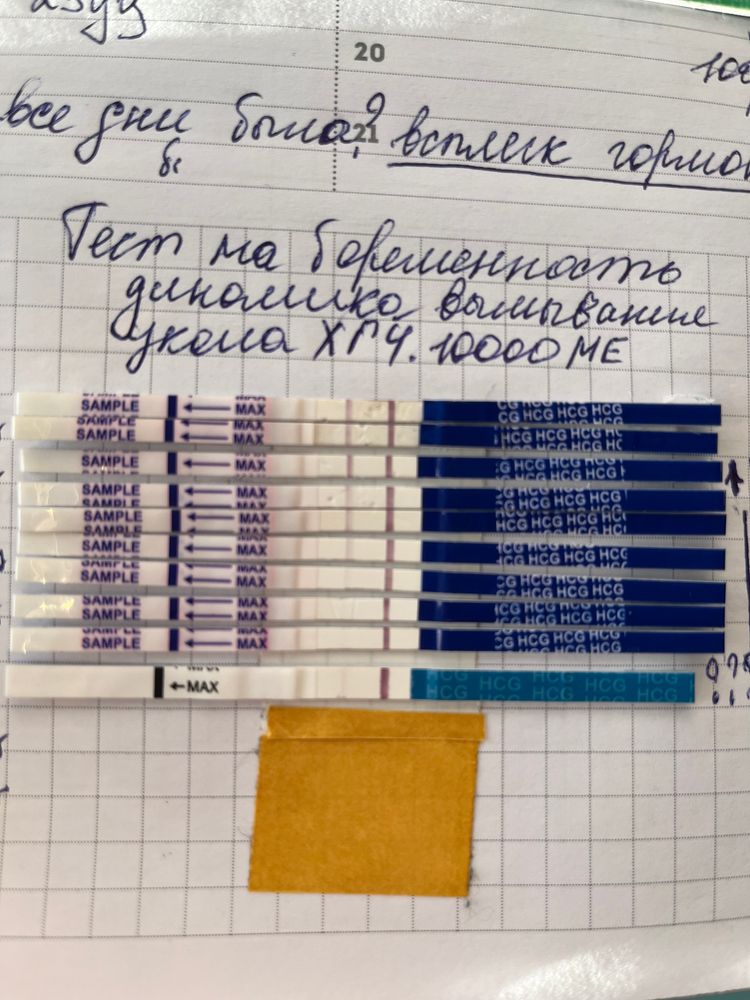 20
все дни была? 21 всплеск гормон
Тест на беременность
динамика вымывание
укола ХГЧ. 10000 МЕ
SAMPLE ← MAX HCG HCG HCG
SAMPLE ← MAX HCG HCG HCG
SAMPLE ← MAX HCG HCG HCG
SAMPLE ← MAX HCG HCG HCG
SAMPLE ← MAX HCG HCG HCG
SAMPLE ← MAX HCG HCG HCG
SAMPLE ← MAX HCG HCG HCG
SAMPLE ← MAX HCG HCG HCG
SAMPLE ← MAX HCG HCG HCG
←MAX HCG HCG HCG HCG